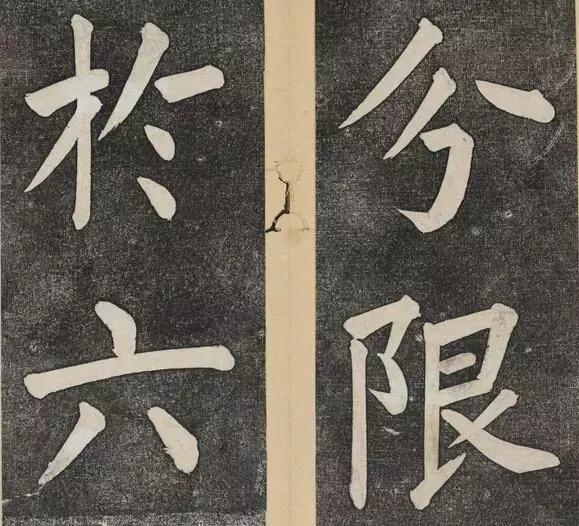 分限
於六